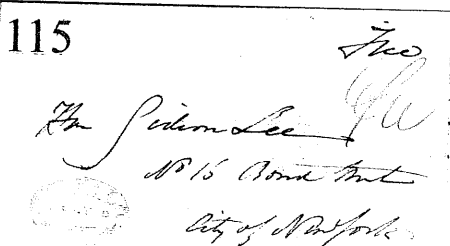 115
Free
Hon Gideon Lee
No 15 Bond Street
City of New York